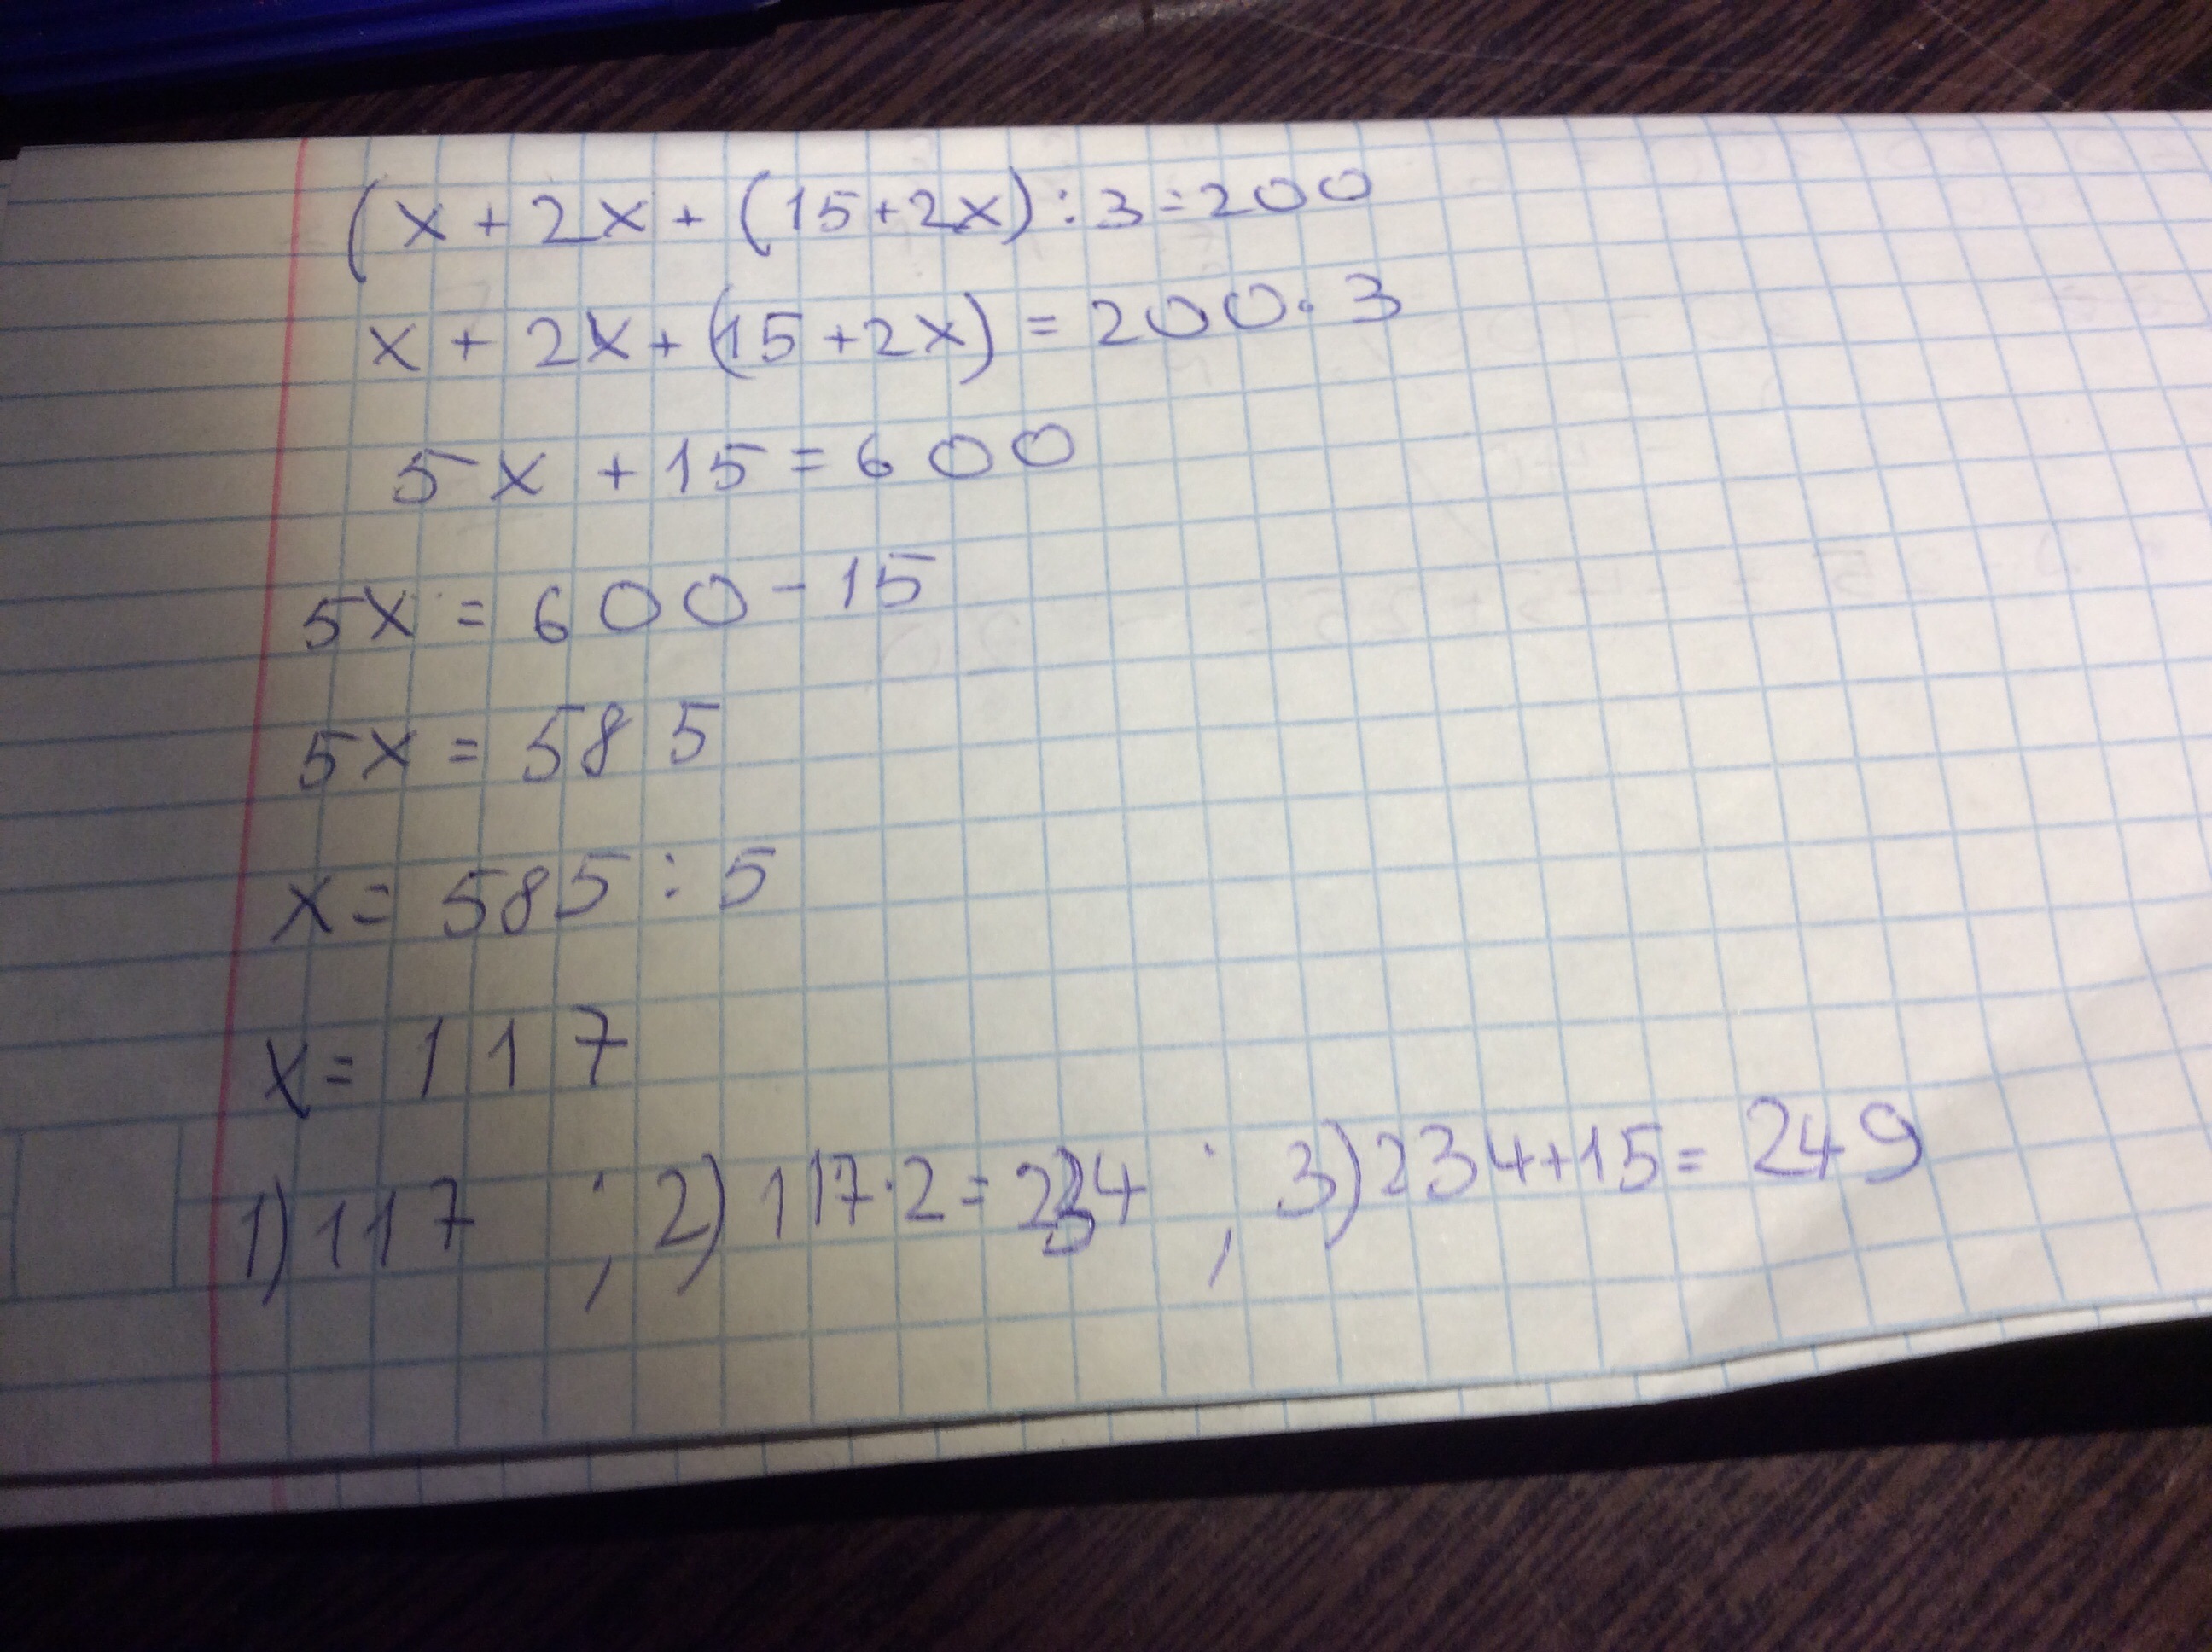 (x + 2x + (15+2x) : 3 = 200
x + 2x + (15 + 2x) = 200 · 3
5x + 15 = 600
5x = 600 - 15
5x = 585
x = 585 : 5
x = 117
1) 117 ; 2) 117 · 2 = 234 ; 3) 234+15 = 249